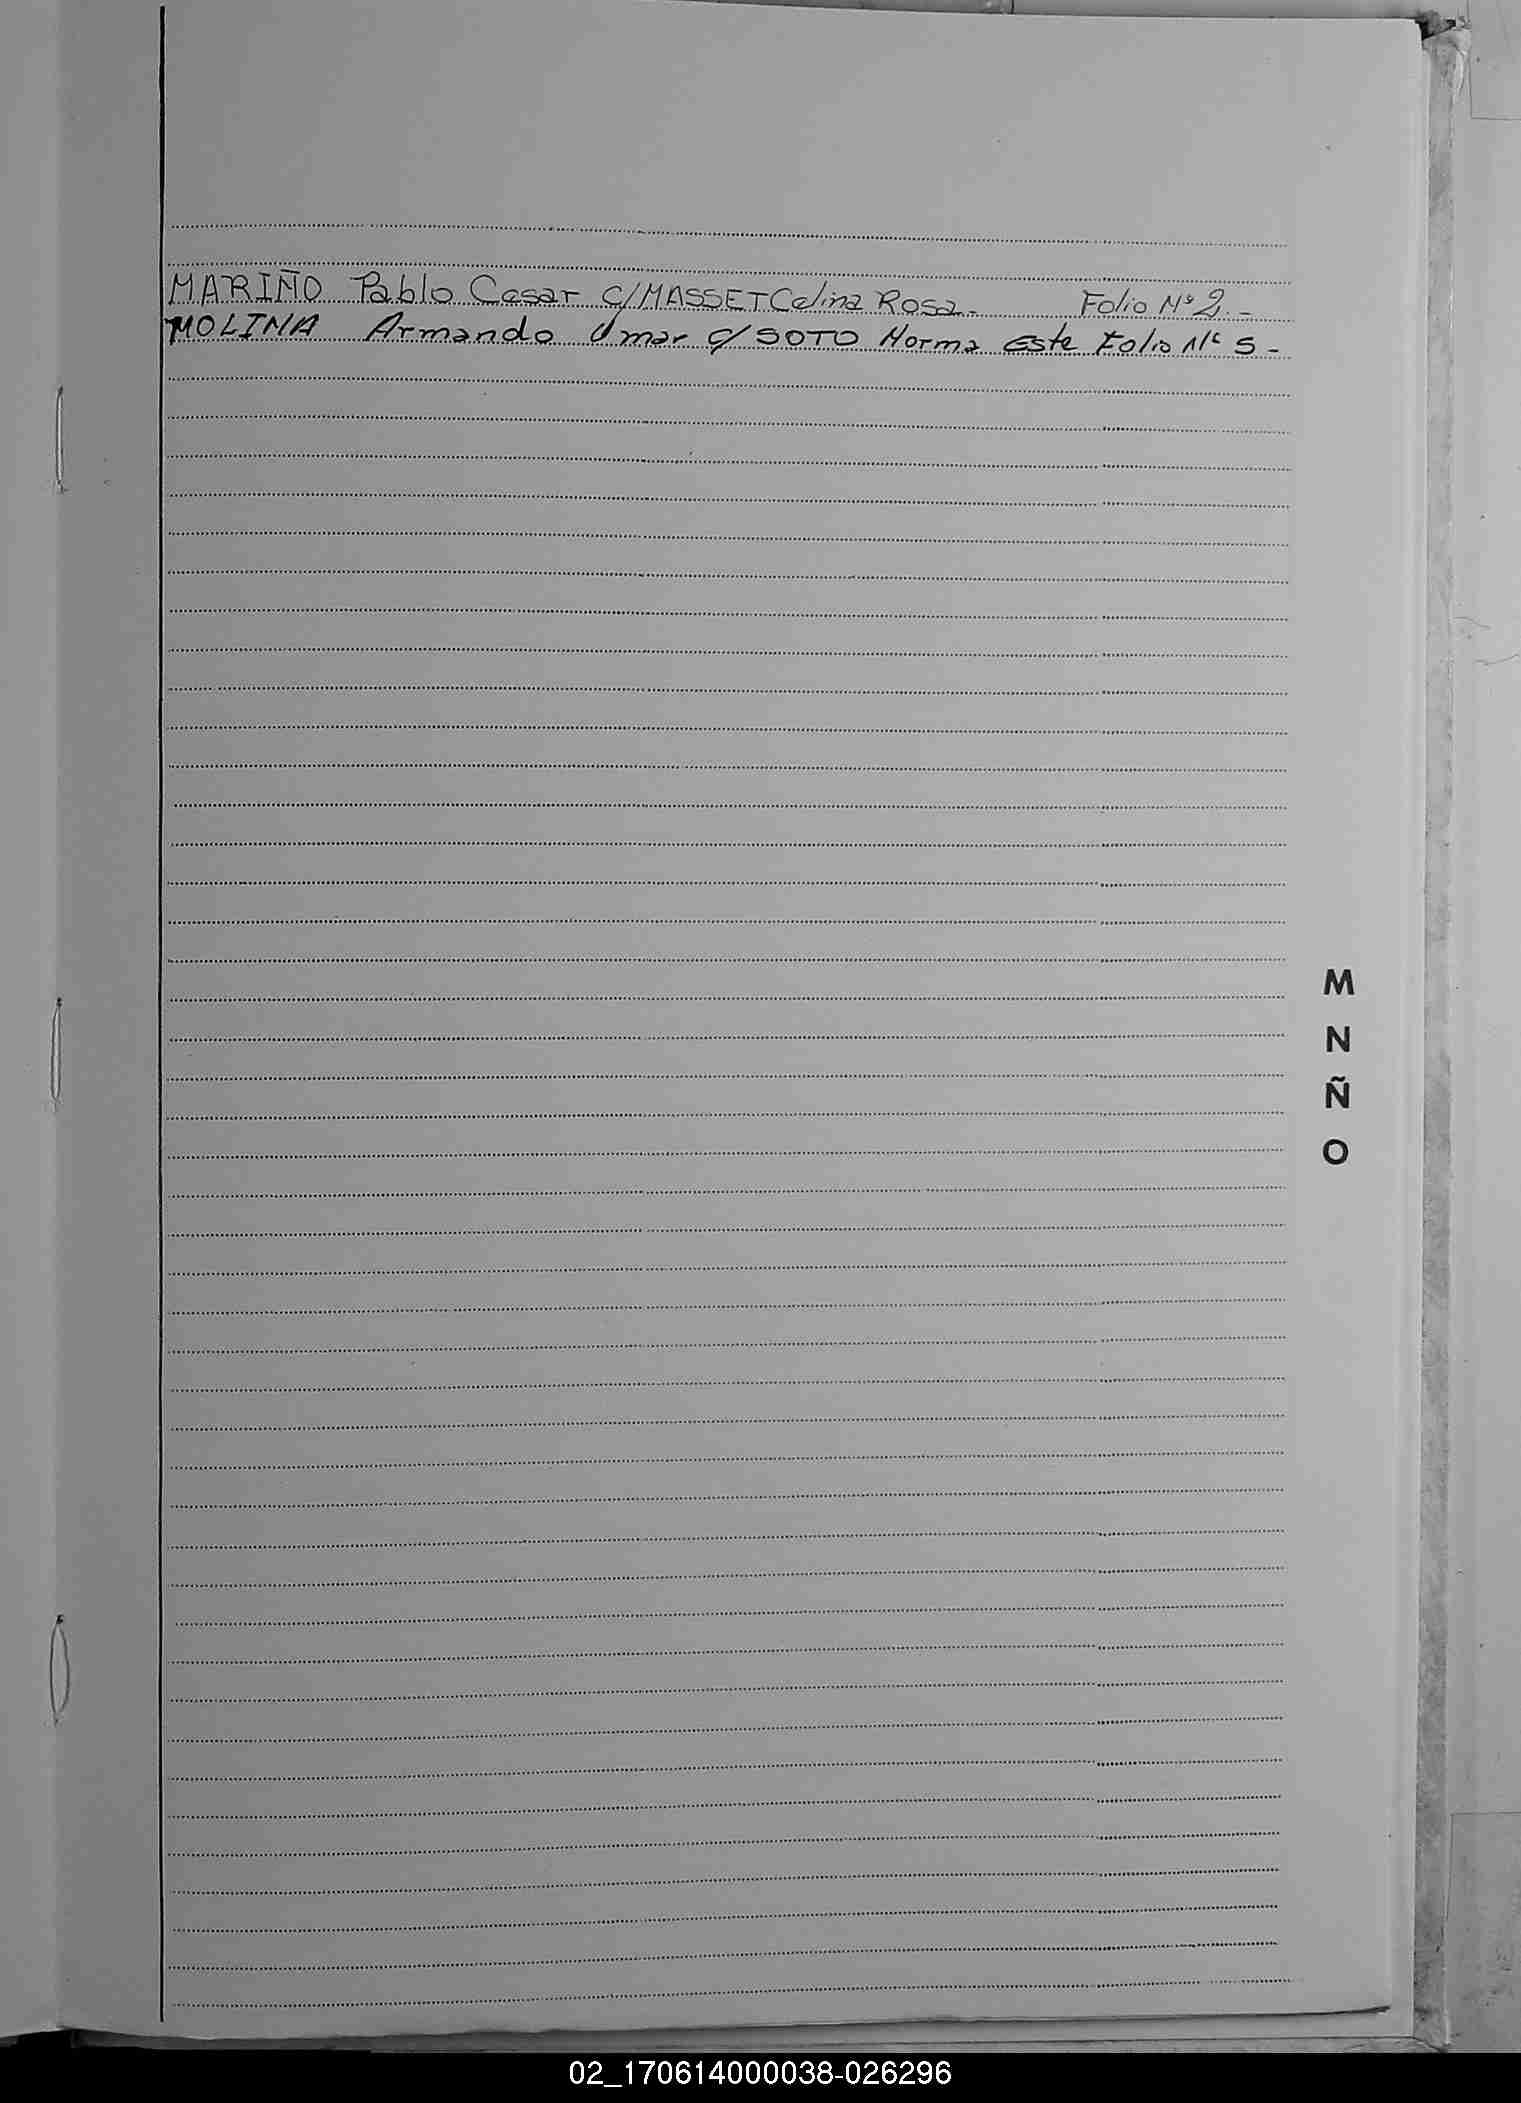 MARIÑO Pablo Cesar C/MASSET Celina Rosa.. Folio Nº 2. -
MOLINA Armando Omar C/ SOTO Norma Este Folio Nº 5 -
M
N
Ñ
O
02_170614000038-026296